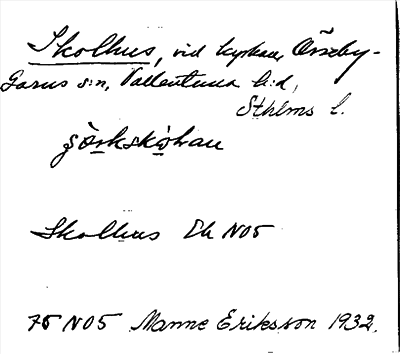 Skolhus, vid kyrkan, Össeby-
Garns s:n, Vallentuna h:d,
Sthlms l.
Skolhus Ek N05
75 N05 Manne Eriksson 1932.